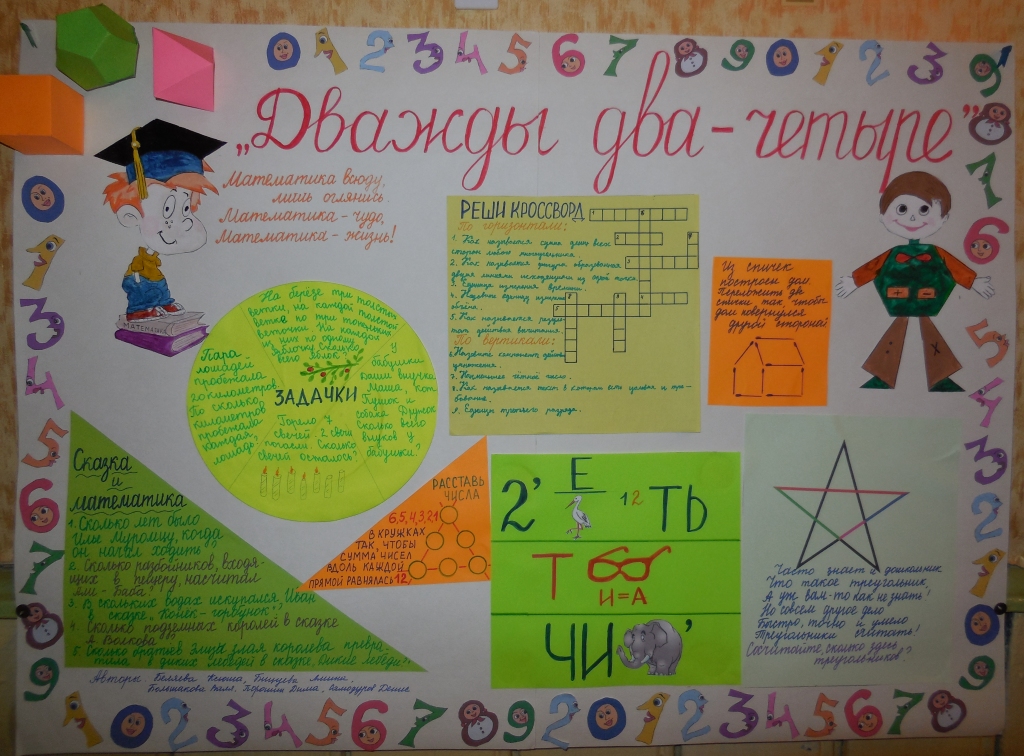 „Дважды два-четыре"
Математика всюду,
лишь оглянись.
Математика - чудо,
Математика - жизнь!
МАТЕМАТИКА
РЕШИ КРОССВОРД
По горизонтали:
1. Как называется сумма длин всех
сторон любого многоугольника.
2. Как называется фигура образованная
двумя лучами исходящими из одной точки.
3. Единица измерения времени.
4. Название единиц измерения
объёма.
5. Как называется резуль-
тат действия вычитания.
По вертикали:
6. Назовите компонент действия
умножения.
7. Наименьшее чётное число.
8. Как называется текст в котором есть условие и тре-
бование.
9. Единица третьего разряда.
Из спичек
построен дом.
Переложить две
спички так чтобы
дом повернулся
другой стороной
На березе три толстые
ветки, на каждой толстой
ветке по три тоненьких
веточки. На каждой
из них по одному
яблочку. Сколько
всего яблок?
Пара
лошадей
пробежала
20 километров
По сколько
километров
пробежала
каждая
лошадь?
ЗАДАЧКИ
У
бабушки
Даши внучка
Маша, кот
Пушок и
собака Дружок
Сколько всего
внуков у
бабушки?
Горело 7
свечей. 2 свечи
погасли. Сколько
свечей осталось?
РАССТАВЬ
ЧИСЛА
6,5,4,3,2,1
В КРУЖКАХ
ТАК, ЧТОБЫ
СУММА ЧИСЕЛ
ВДОЛЬ КАЖДОЙ
ПРЯМОЙ РАВНЯЛАСЬ 12,
Сказка
и
математика
1. Сколько лет было
Илье Муромцу, когда
он начал ходить?
2. Сколько разбойников, входя-
щих в пещеру, насчитал
Али - Баба?
3. В скольких водах искупался Иван
в сказке „Конек - горбунок"?
4. Сколько подземных королей в сказке
А. Волкова?
5. Сколько братьев Элизы злая королева превра-
тила в диких лебедей в сказке „Дикие лебеди"?
2' Е 12 ТЬ
Т И=А
ЧИ '
Часто знает и дошкольник
Что такое треугольник,
А уж вам-то как не знать!
Но совсем другое дело
Быстро, точно и умело
Треугольники считать!
Сосчитайте, сколько здесь
треугольников?
Авторы: Беляева Ксюша,
Большакова Валя, Дима, Самодуров Денис